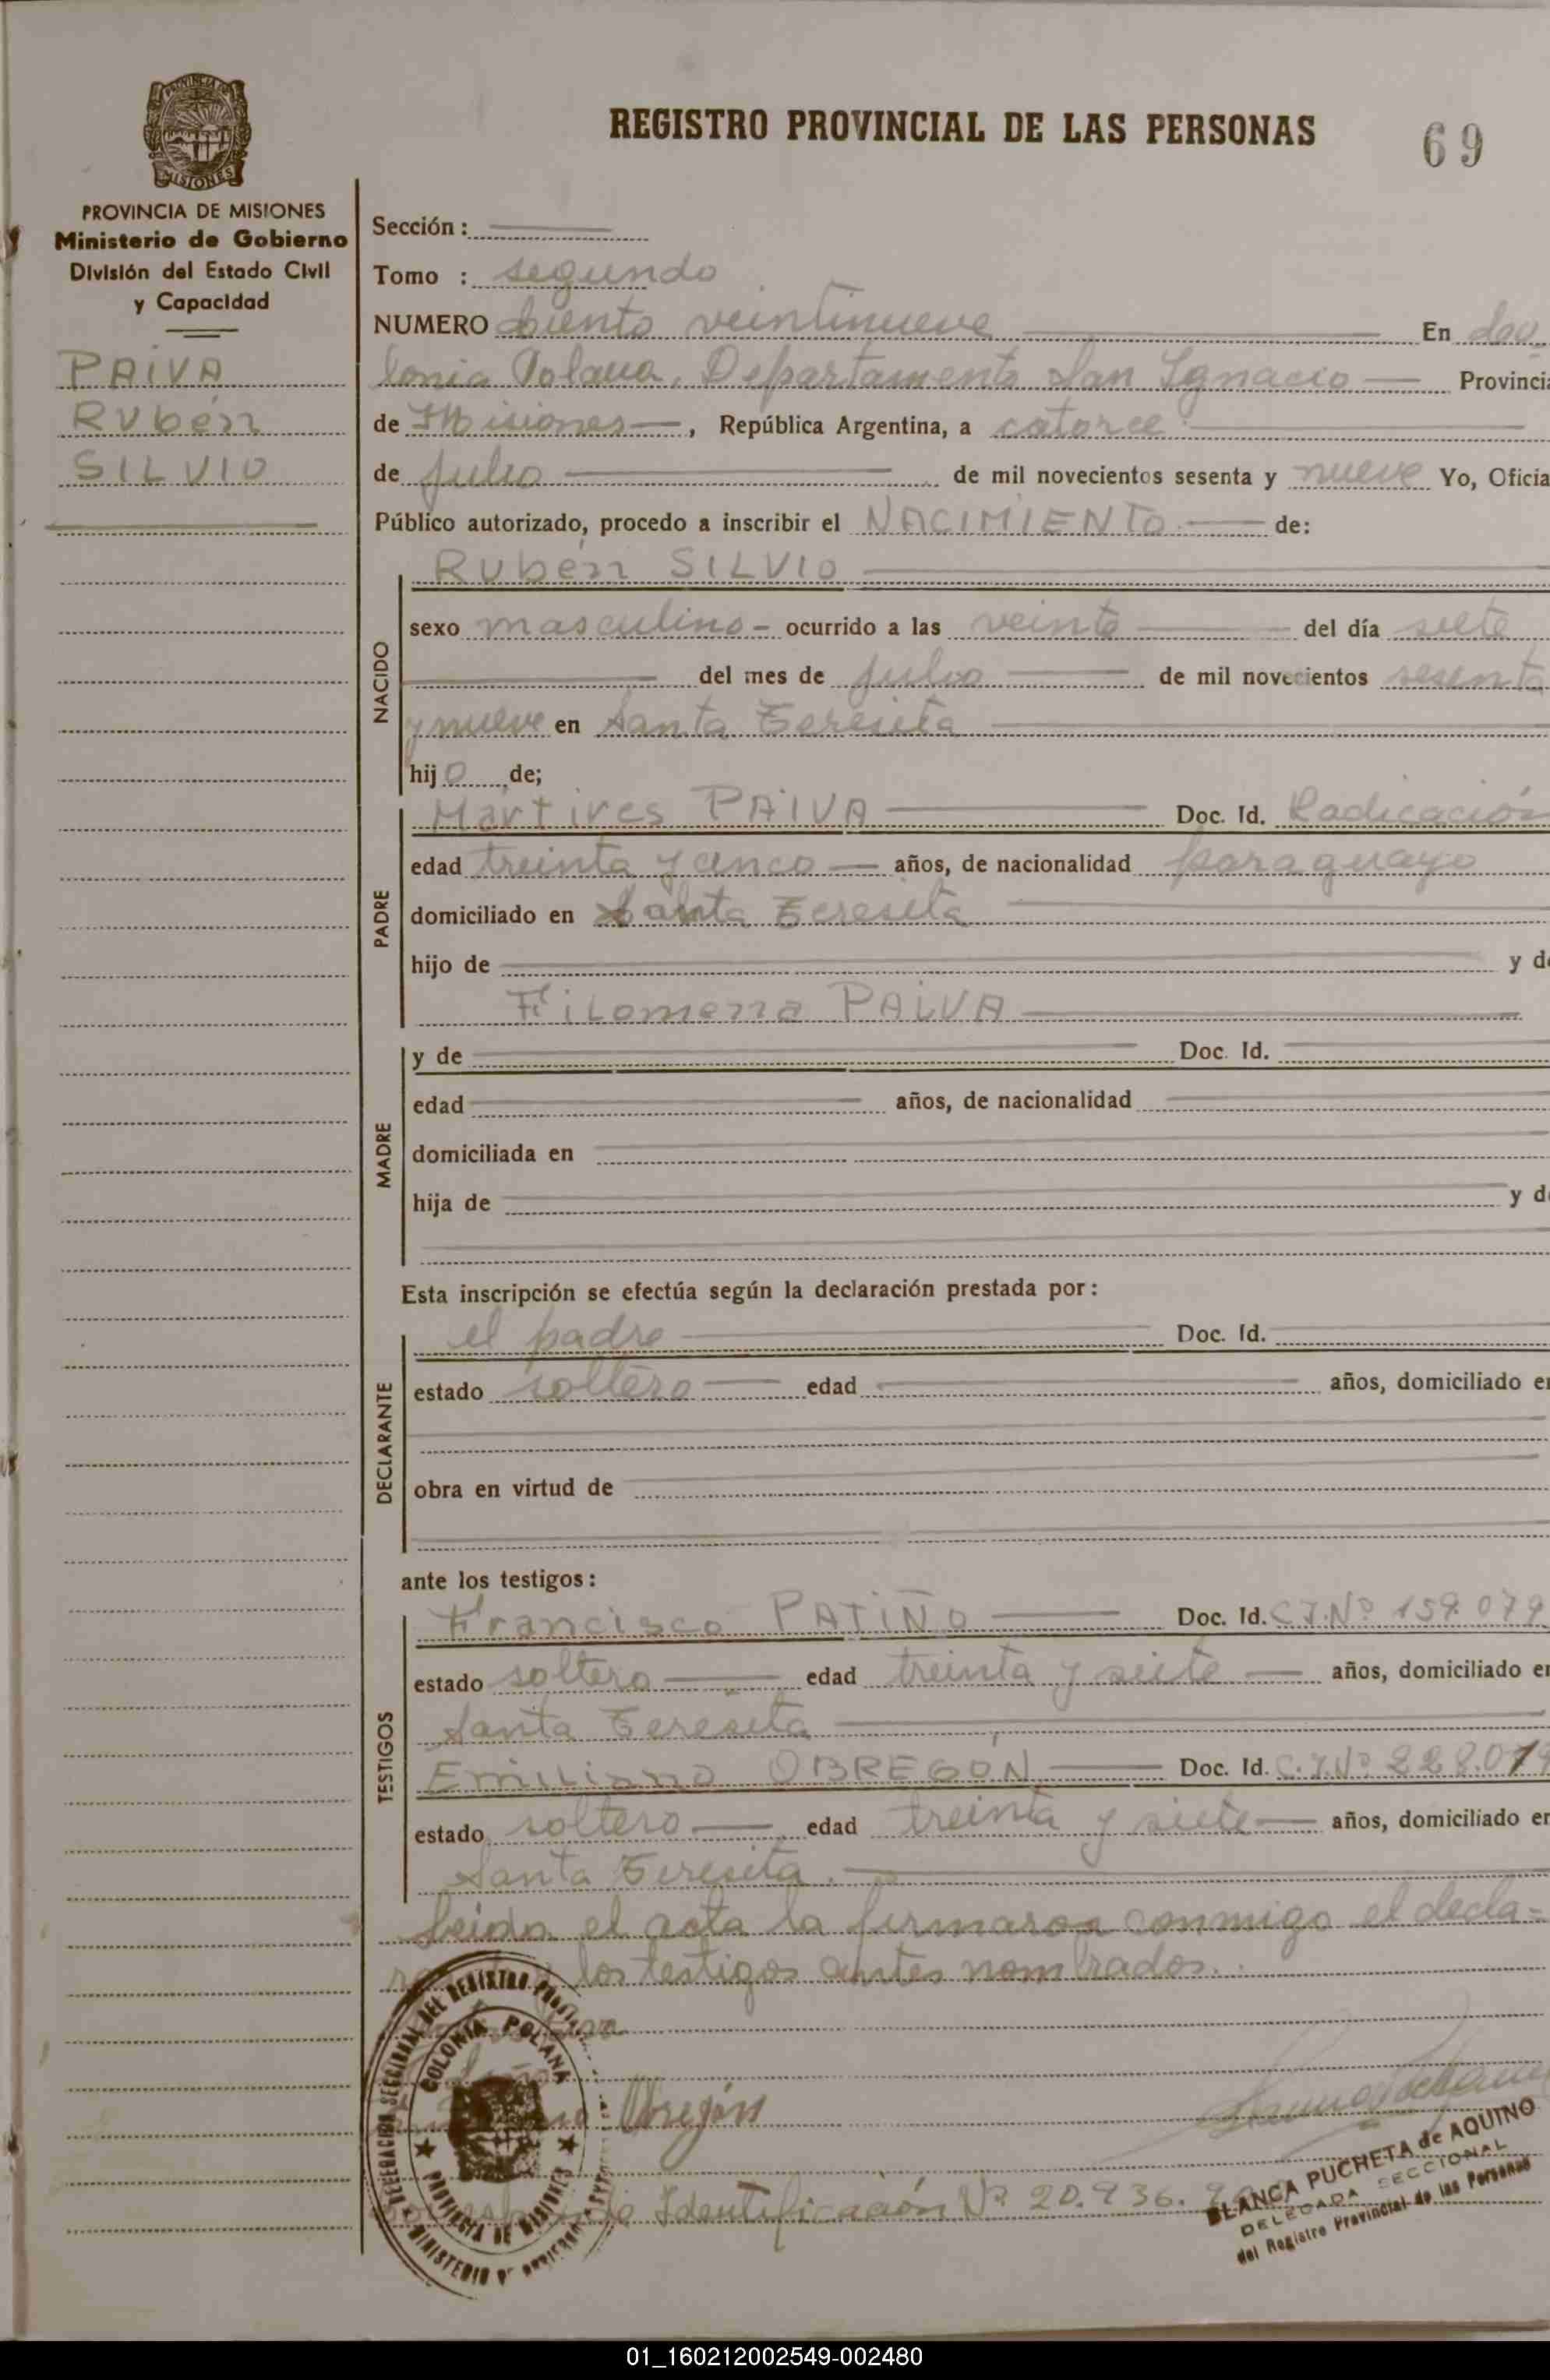 REGISTRO PROVINCIAL DE LAS PERSONAS
69
PROVINCIA DE MISIONES
MISIONES
PROVINCIA DE MISIONES
Ministerio de Gobierno
División del Estado Civil
y Capacidad
PAIVA
Rubén
SILVIO
Sección :
Tomo : segundo
NUMERO Ciento veintinueve En Co-
lonia Polana, Departamento San Ignacio Provincia
de Misiones, República Argentina, a catorce
de julio de mil novecientos sesenta y nueve Yo, Oficia
Público autorizado, procedo a inscribir el NACIMIENTO de:
Rubén SILVIO
NACIDO
sexo masculino - ocurrido a las veinte del día siete
del mes de julio de mil novecientos sesenta
y nueve en Santa Teresita
hijo de;
PADRE
Mártires PAIVA Doc. Id. Radicación
edad treinta y cinco años, de nacionalidad paraguayo
domiciliado en Santa Teresita
hijo de y de
Filomena PAIVA
MADRE
y de Doc. Id.
edad años, de nacionalidad
domiciliada en
hija de y de
Esta inscripción se efectúa según la declaración prestada por :
DECLARANTE
el padre Doc. Id.
estado soltero edad años, domiciliado en
obra en virtud de
ante los testigos :
TESTIGOS
Francisco PATIÑO Doc. Id. C.I.Nº 159.079
estado soltero edad treinta y siete años, domiciliado en
Santa Teresita
Emiliano OBREGÓN Doc. Id. C.I.Nº 228.07
estado soltero edad treinta y siete años, domiciliado en
Santa Teresita.
Leida el acta la firmaron conmigo el decla-
los testigos antes nombrados.
Obregón
Identificación Nº 20.936.
DELEGACION SECCIONAL DEL REGISTRO
COLONIA POLANA
PROVINCIA DE MISIONES
MINISTERIO
BLANCA PUCHETA de AQUINO
DELEGADA SECCIONAL
del Registro Provincial de las Personas
01_160212002549-002480